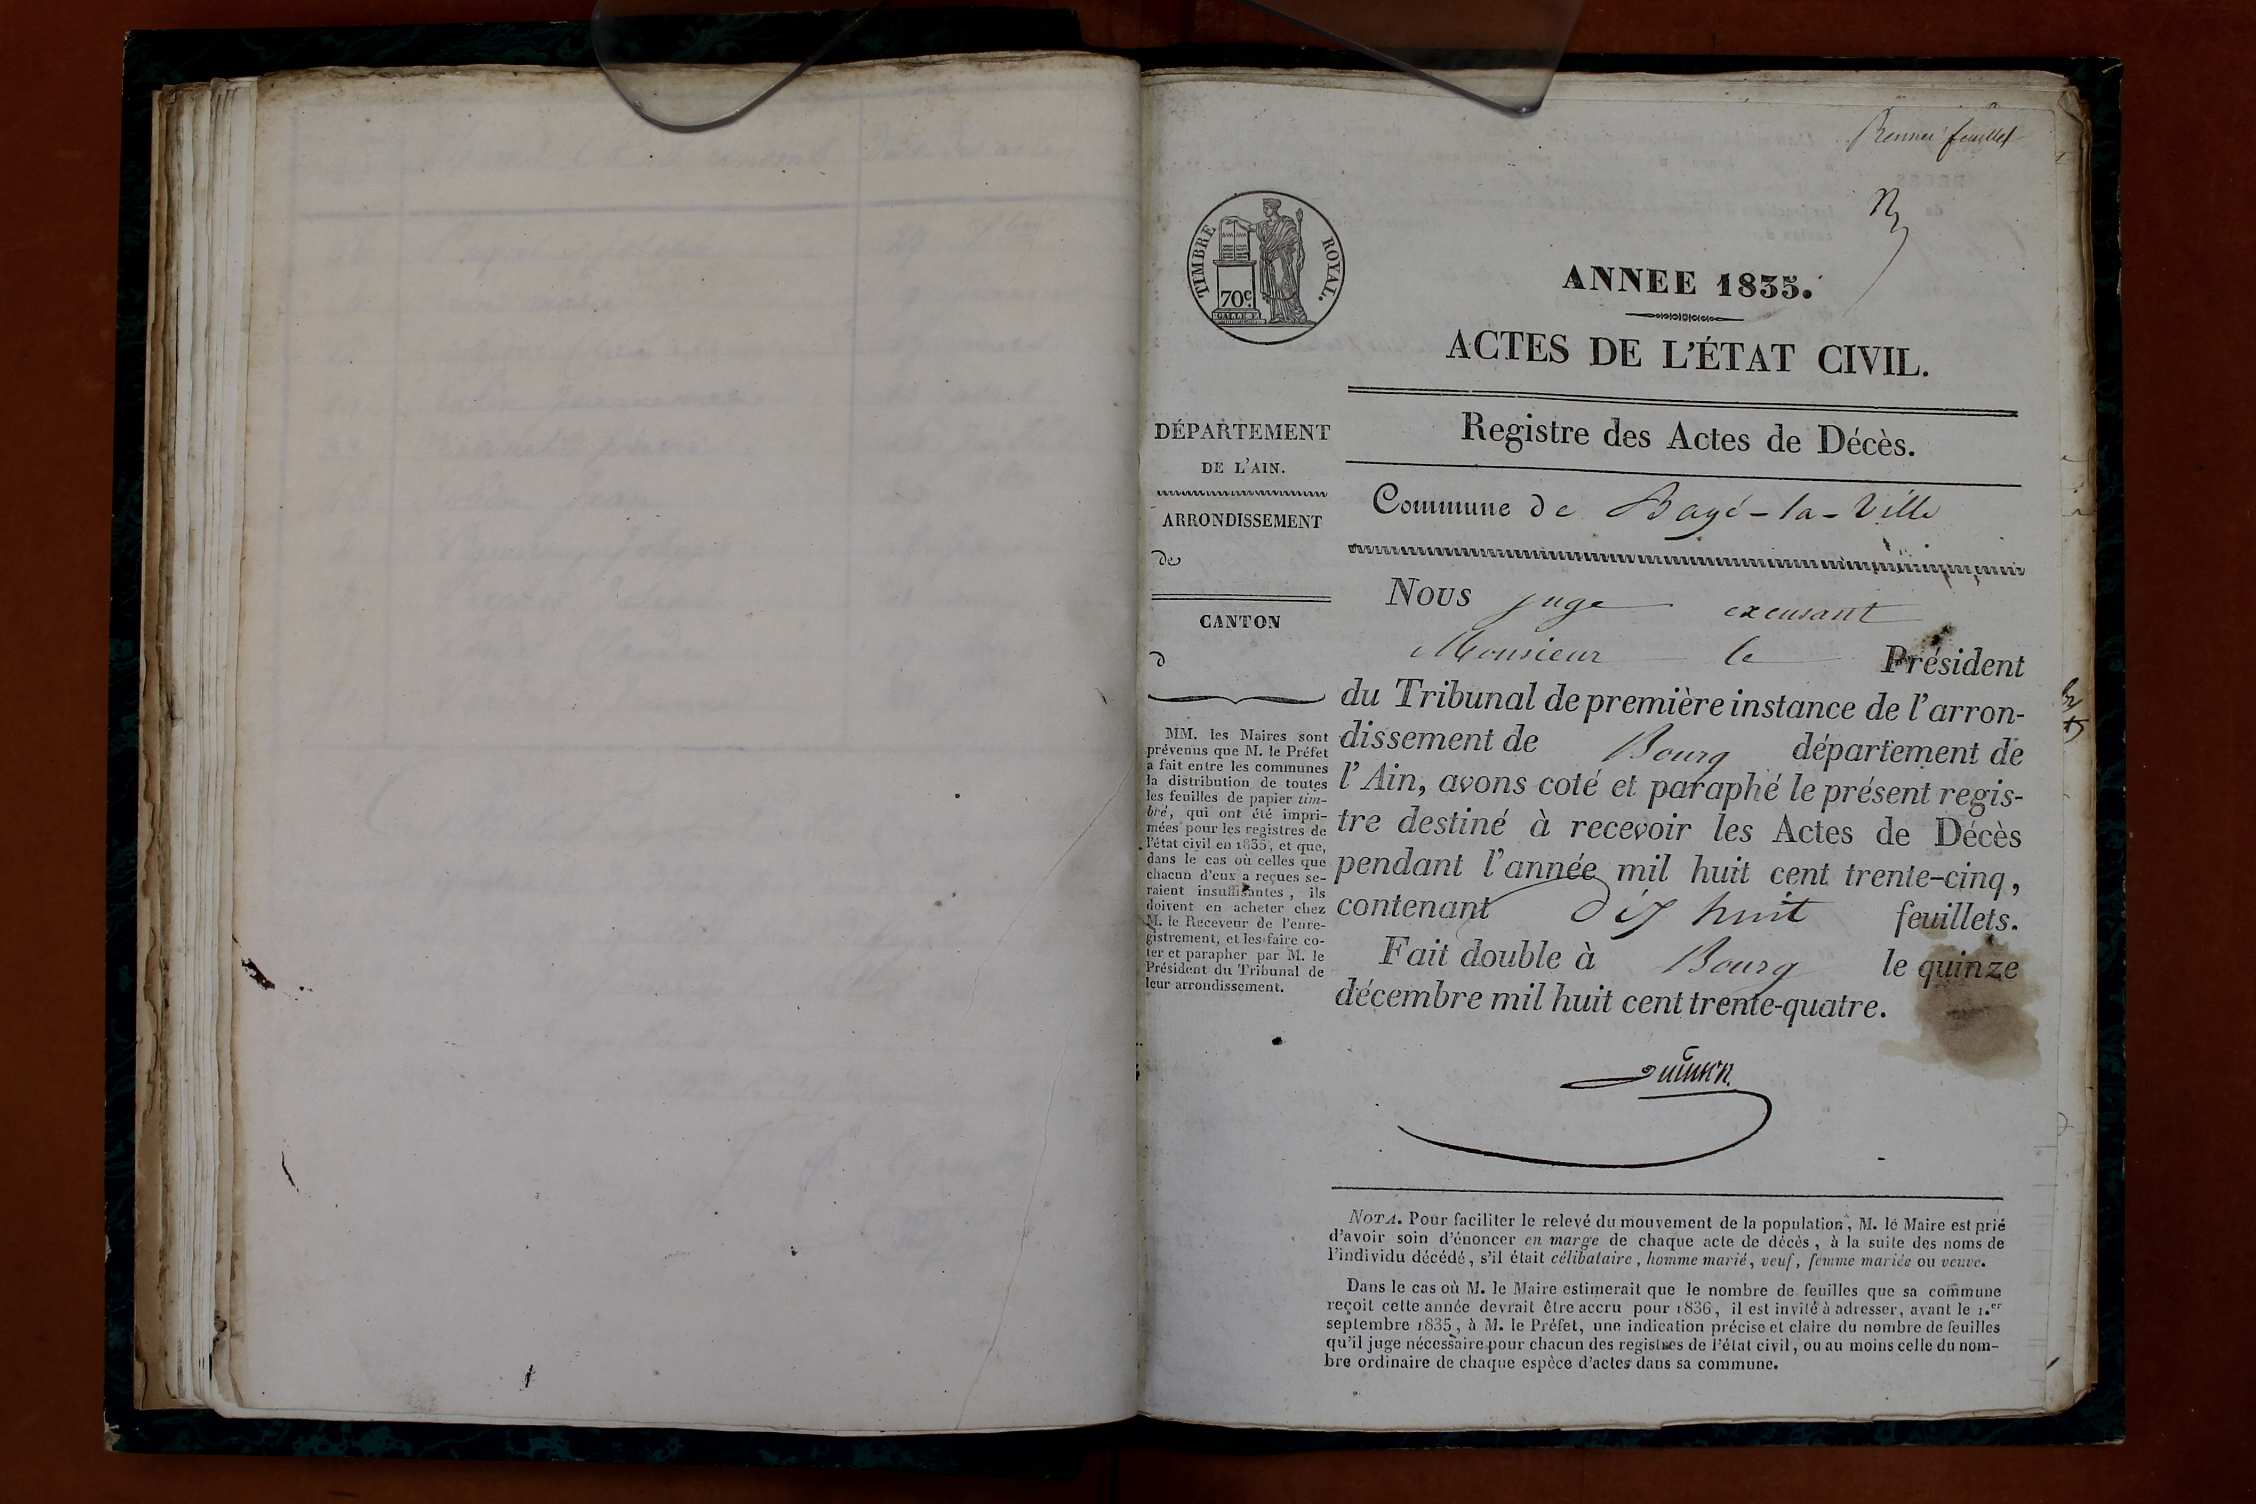 Premier feuillet
TIMBRE ROYAL.
70c.
ANNEE 1835.
ACTES DE L'ÉTAT CIVIL.
Registre des Actes de Décès.
Commune de Bagé-la-Ville
DÉPARTEMENT
DE L'AIN.
ARRONDISSEMENT
de
CANTON
d
MM. les Maires sont
prévenus que M. le Préfet
a fait entre les communes
la distribution de toutes
les feuilles de papier tim-
bré, qui ont été impri-
mées pour les registres de
l'état civil en 1835, et que,
dans le cas où celles que
chacun d'eux a reçues se-
raient insuffisantes, ils
doivent en acheter chez
M. le Receveur de l'enre-
gistrement, et les faire co-
ter et parapher par M. le
Président du Tribunal de
leur arrondissement.
Nous juge excusant
Monsieur le Président
du Tribunal de première instance de l'arron-
dissement de Bourg département de
l'Ain, avons coté et paraphé le présent regis-
tre destiné à recevoir les Actes de Décès
pendant l'année mil huit cent trente-cinq,
contenant dix huit feuillets.
Fait double à Bourg le quinze
décembre mil huit cent trente-quatre.
NOTA. Pour faciliter le relevé du mouvement de la population, M. le Maire est prié
d'avoir soin d'énoncer en marge de chaque acte de décès, à la suite des noms de
l'individu décédé, s'il était célibataire, homme marié, veuf, femme mariée ou veuve.
Dans le cas où M. le Maire estimerait que le nombre de feuilles que sa commune
reçoit cette année devrait être accru pour 1836, il est invité à adresser, avant le 1.er
septembre 1835, à M. le Préfet, une indication précise et claire du nombre de feuilles
qu'il juge nécessaire pour chacun des registres de l'état civil, ou au moins celle du nom-
bre ordinaire de chaque espèce d'actes dans sa commune.